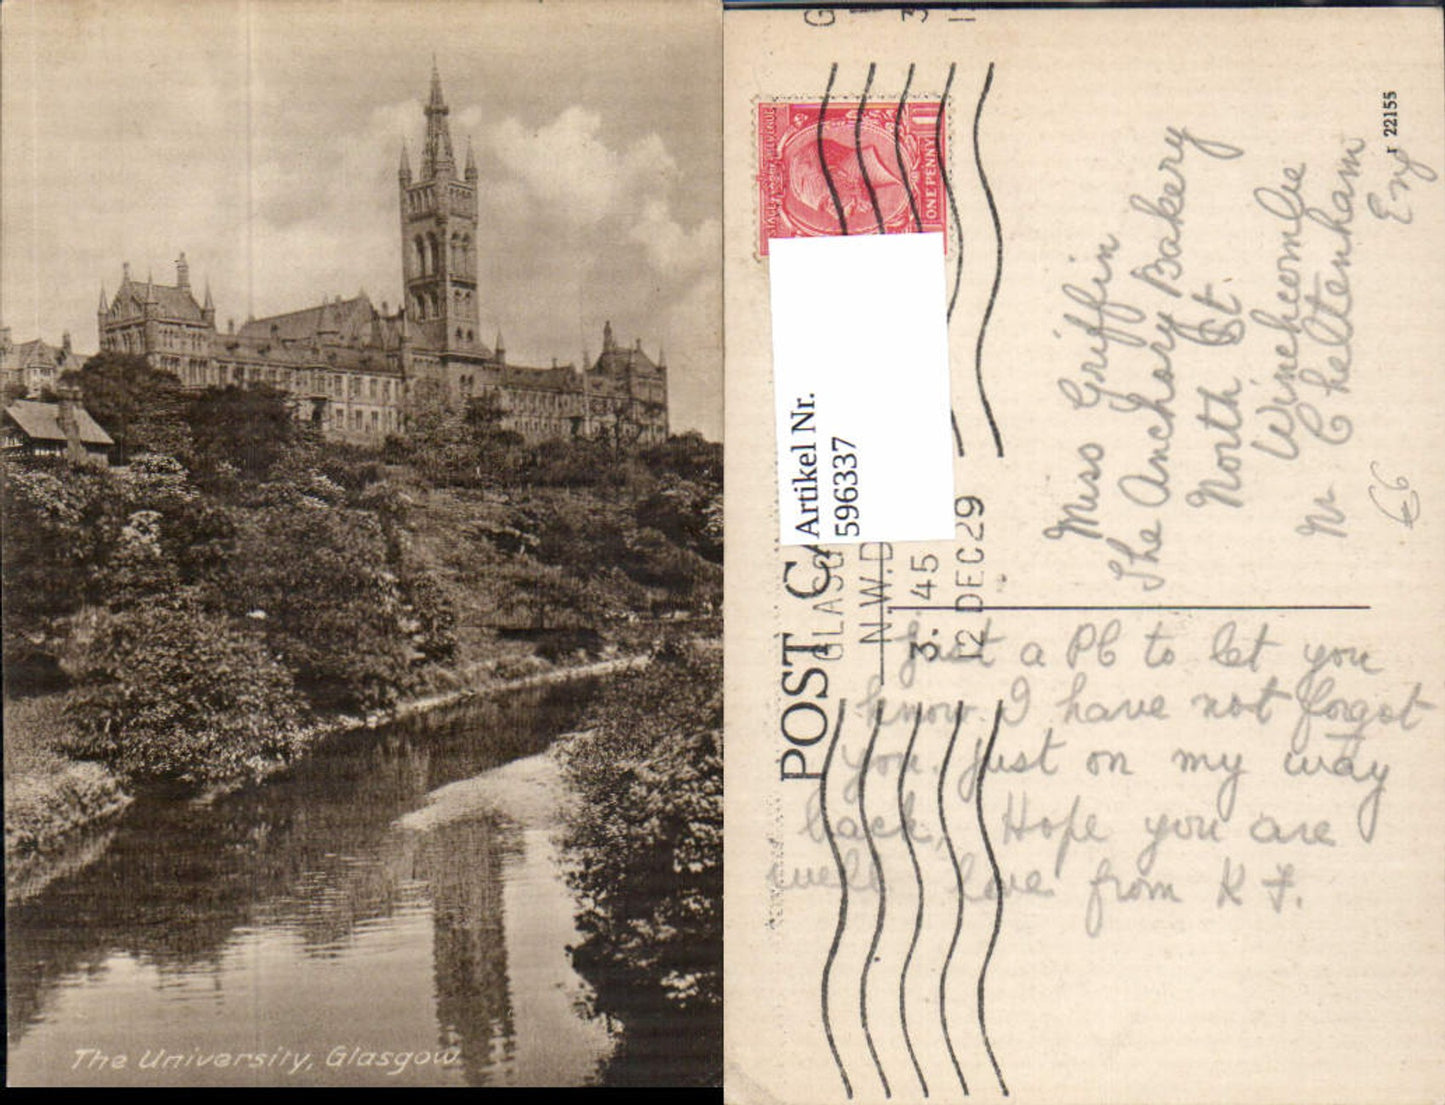 The University, Glasgow.
POST
STAGE
REVENUE
ONE PENNY
Artikel Nr.
596337
N.W.D
3. 45
12 DEC 29
Miss Griffin
The Anchory Bakery
North St.
Winchcombe
Nr Cheltenham
Eng
22155
£6
Just a PC to let you
know I have not forgot
you. just on my way
back, Hope you are
well love from K F.